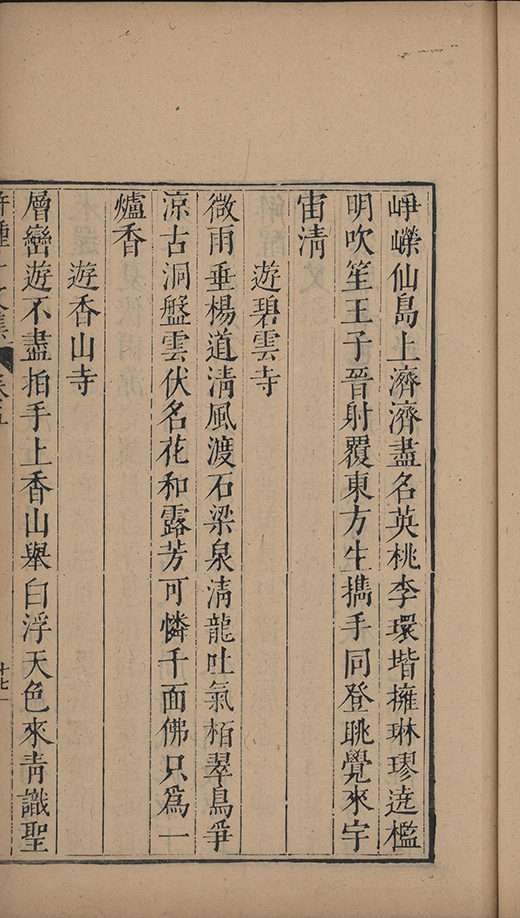 崢嶸仙島上濟濟盡名英桃李環堦擁琳璆遶檻
明吹笙王子晉射覆東方生攜手同登眺覺來宇
宙淸
遊碧雲寺
微雨垂楊道淸風渡石梁泉淸龍吐氣栢翠鳥爭
涼古洞盤雲伏名花和露芳可憐千面佛只爲一
爐香
遊香山寺
層巒遊不盡拍手上香山舉白浮天色來靑識聖